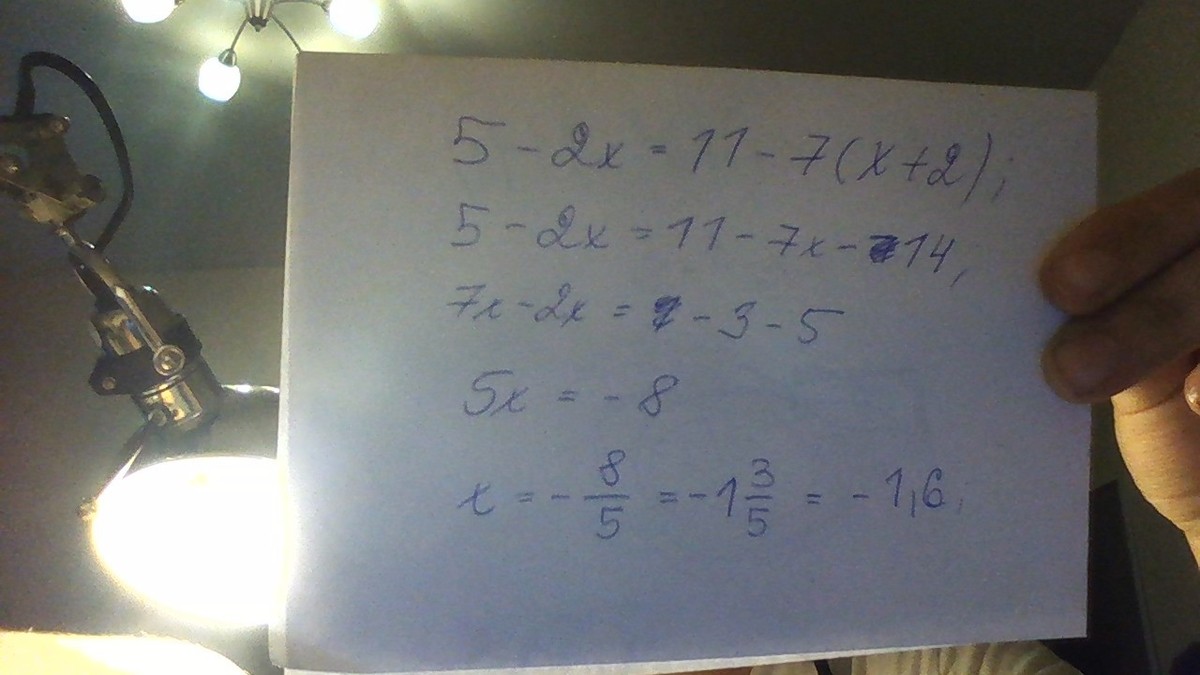 5 - 2x = 11 - 7(x+2);
5 - 2x = 11 - 7x - 14;
7x - 2x = - 3 - 5
5x = - 8
x = - 8/5 = -1 3/5 = - 1,6;